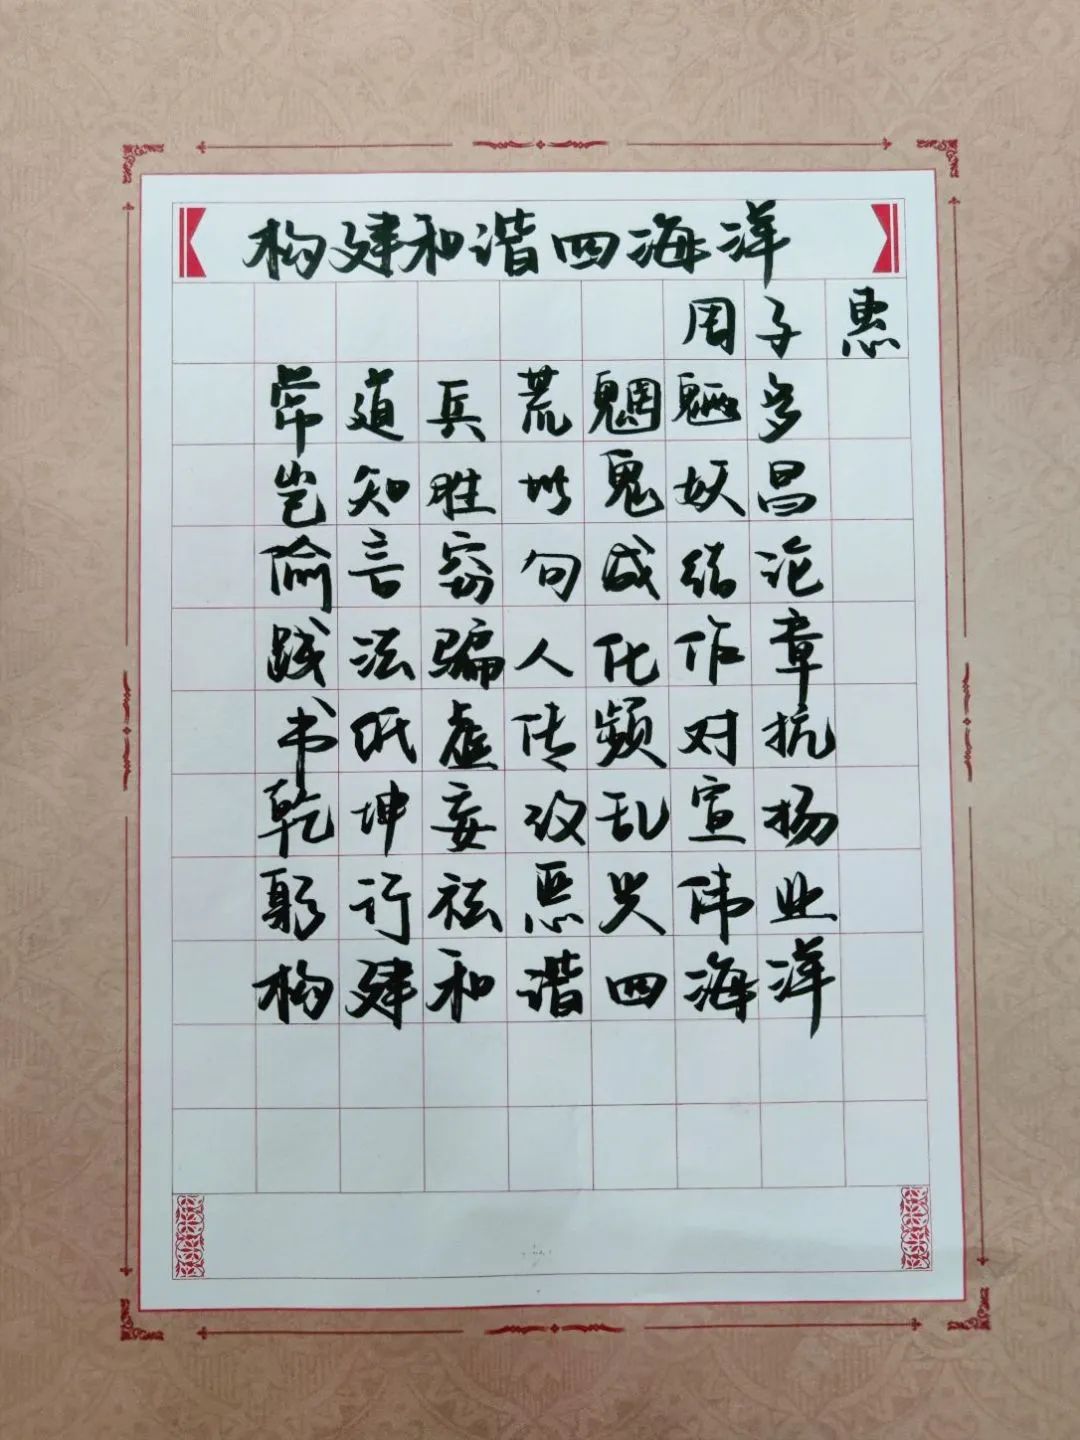 构建和谐四海洋
周子惠
常道兵荒魍魉多
岂知胜似鬼妖昌
偷言窃句成结论
践法骗人化作章
书纸虚传频对抗
乾坤妄攻乱宣扬
躬行祛恶兴伟业
构建和谐四海洋